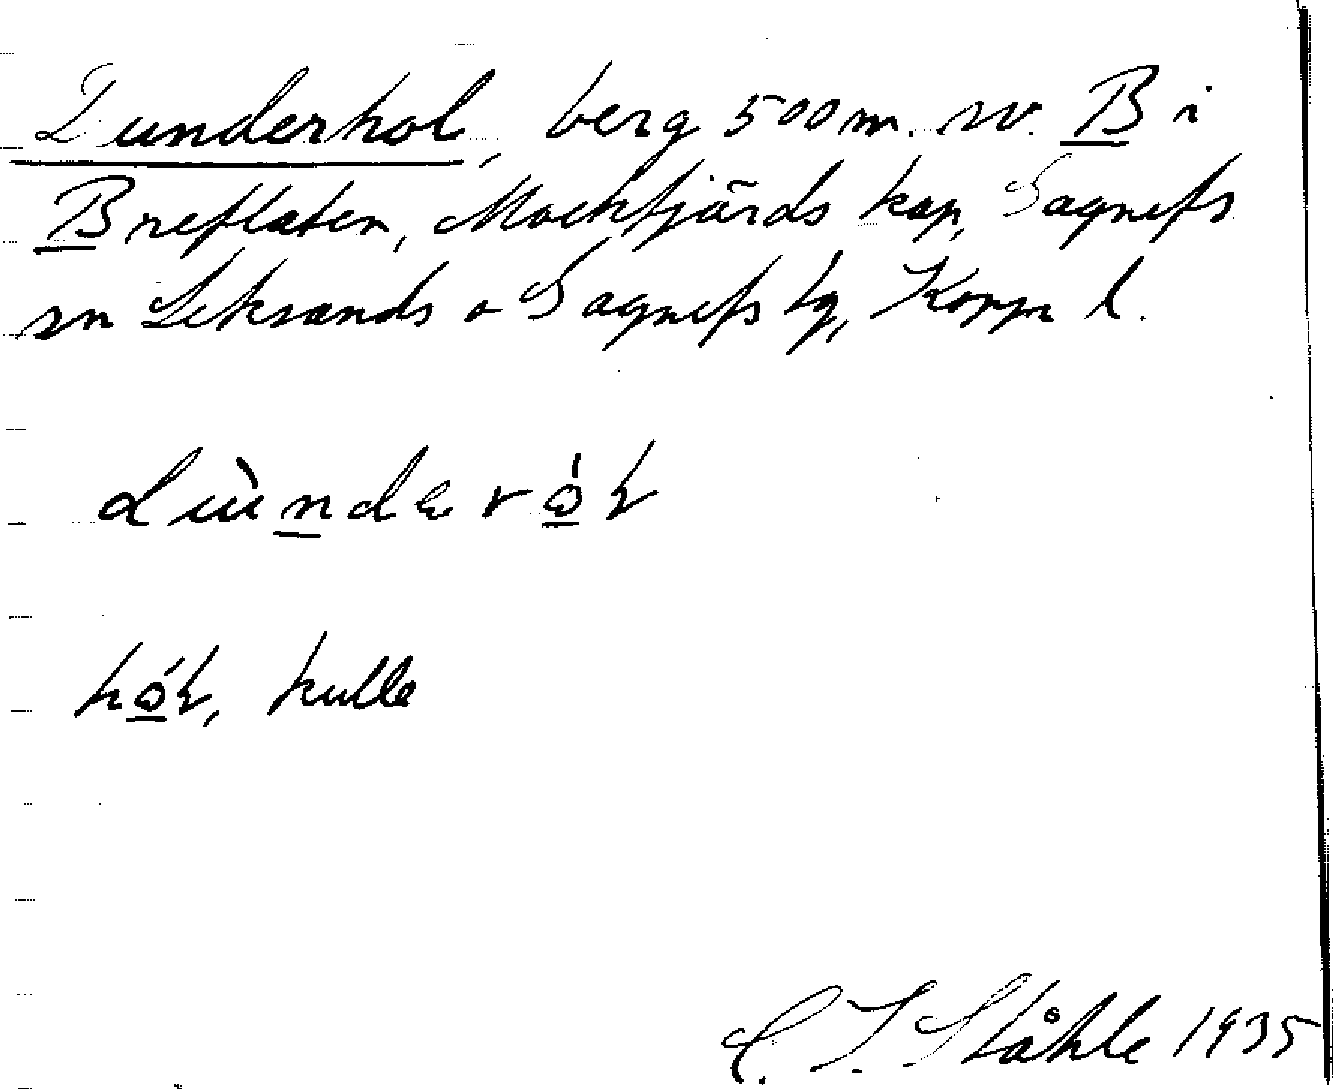 Lunderhol, berg 500 m. sv. B i
Breflaten, Mockfjärds kap, Gagnefs
sn Leksands o Gagnefs tg, Kopp l.
hól, kulle
C. I. Ståhle 1935